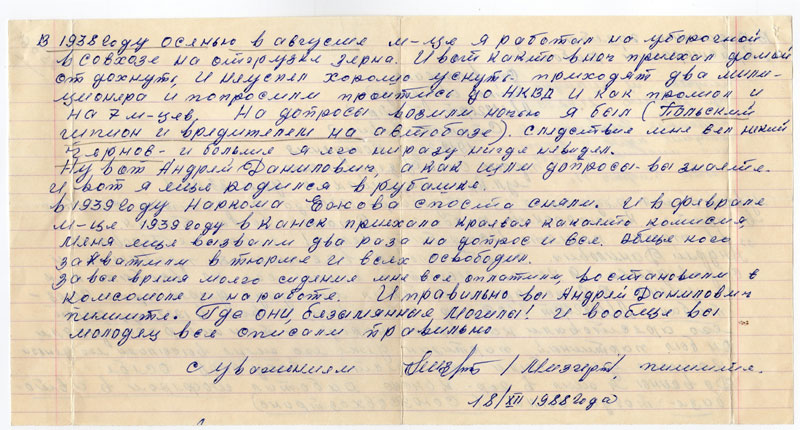 В 1938 году осенью в августе м-це я работал на уборочной
в совхозе на отгрузке зерна. И вот как то в ноч приехал домой
отдохнуть, и неуспел хорошо уснуть приходят два мили-
ционера и попросили пройтись до НКВД и как промон и
на 7 м-цев. На допросы возили ночью я был (Польский
шпион и вредителем на автобазе). следствие мне вел некий
Чернов - и больше я его ниразу нигде невидел.
Ну вот Андрей Данилович, а как шли допросы - вы знаете.
и вот я еще родился в рубашке.
в 1939 году Наркома Ежова споста сняли. И в феврале
м-це 1939 году в Канск приехала краевая какаято комисия,
меня еще вызвали два раза на допрос и все. Обще кого
захватили в тюрме и всех освободил.
За все время моего сидения мне все оплатили, востановили в
комсомоле и на работе. И правильно вы Андрей Данилович
пишите. Где они, безымянные могилы! и вообще вы
молодец все списали правильно.
с уважением пишите.
18/XII 1988 года